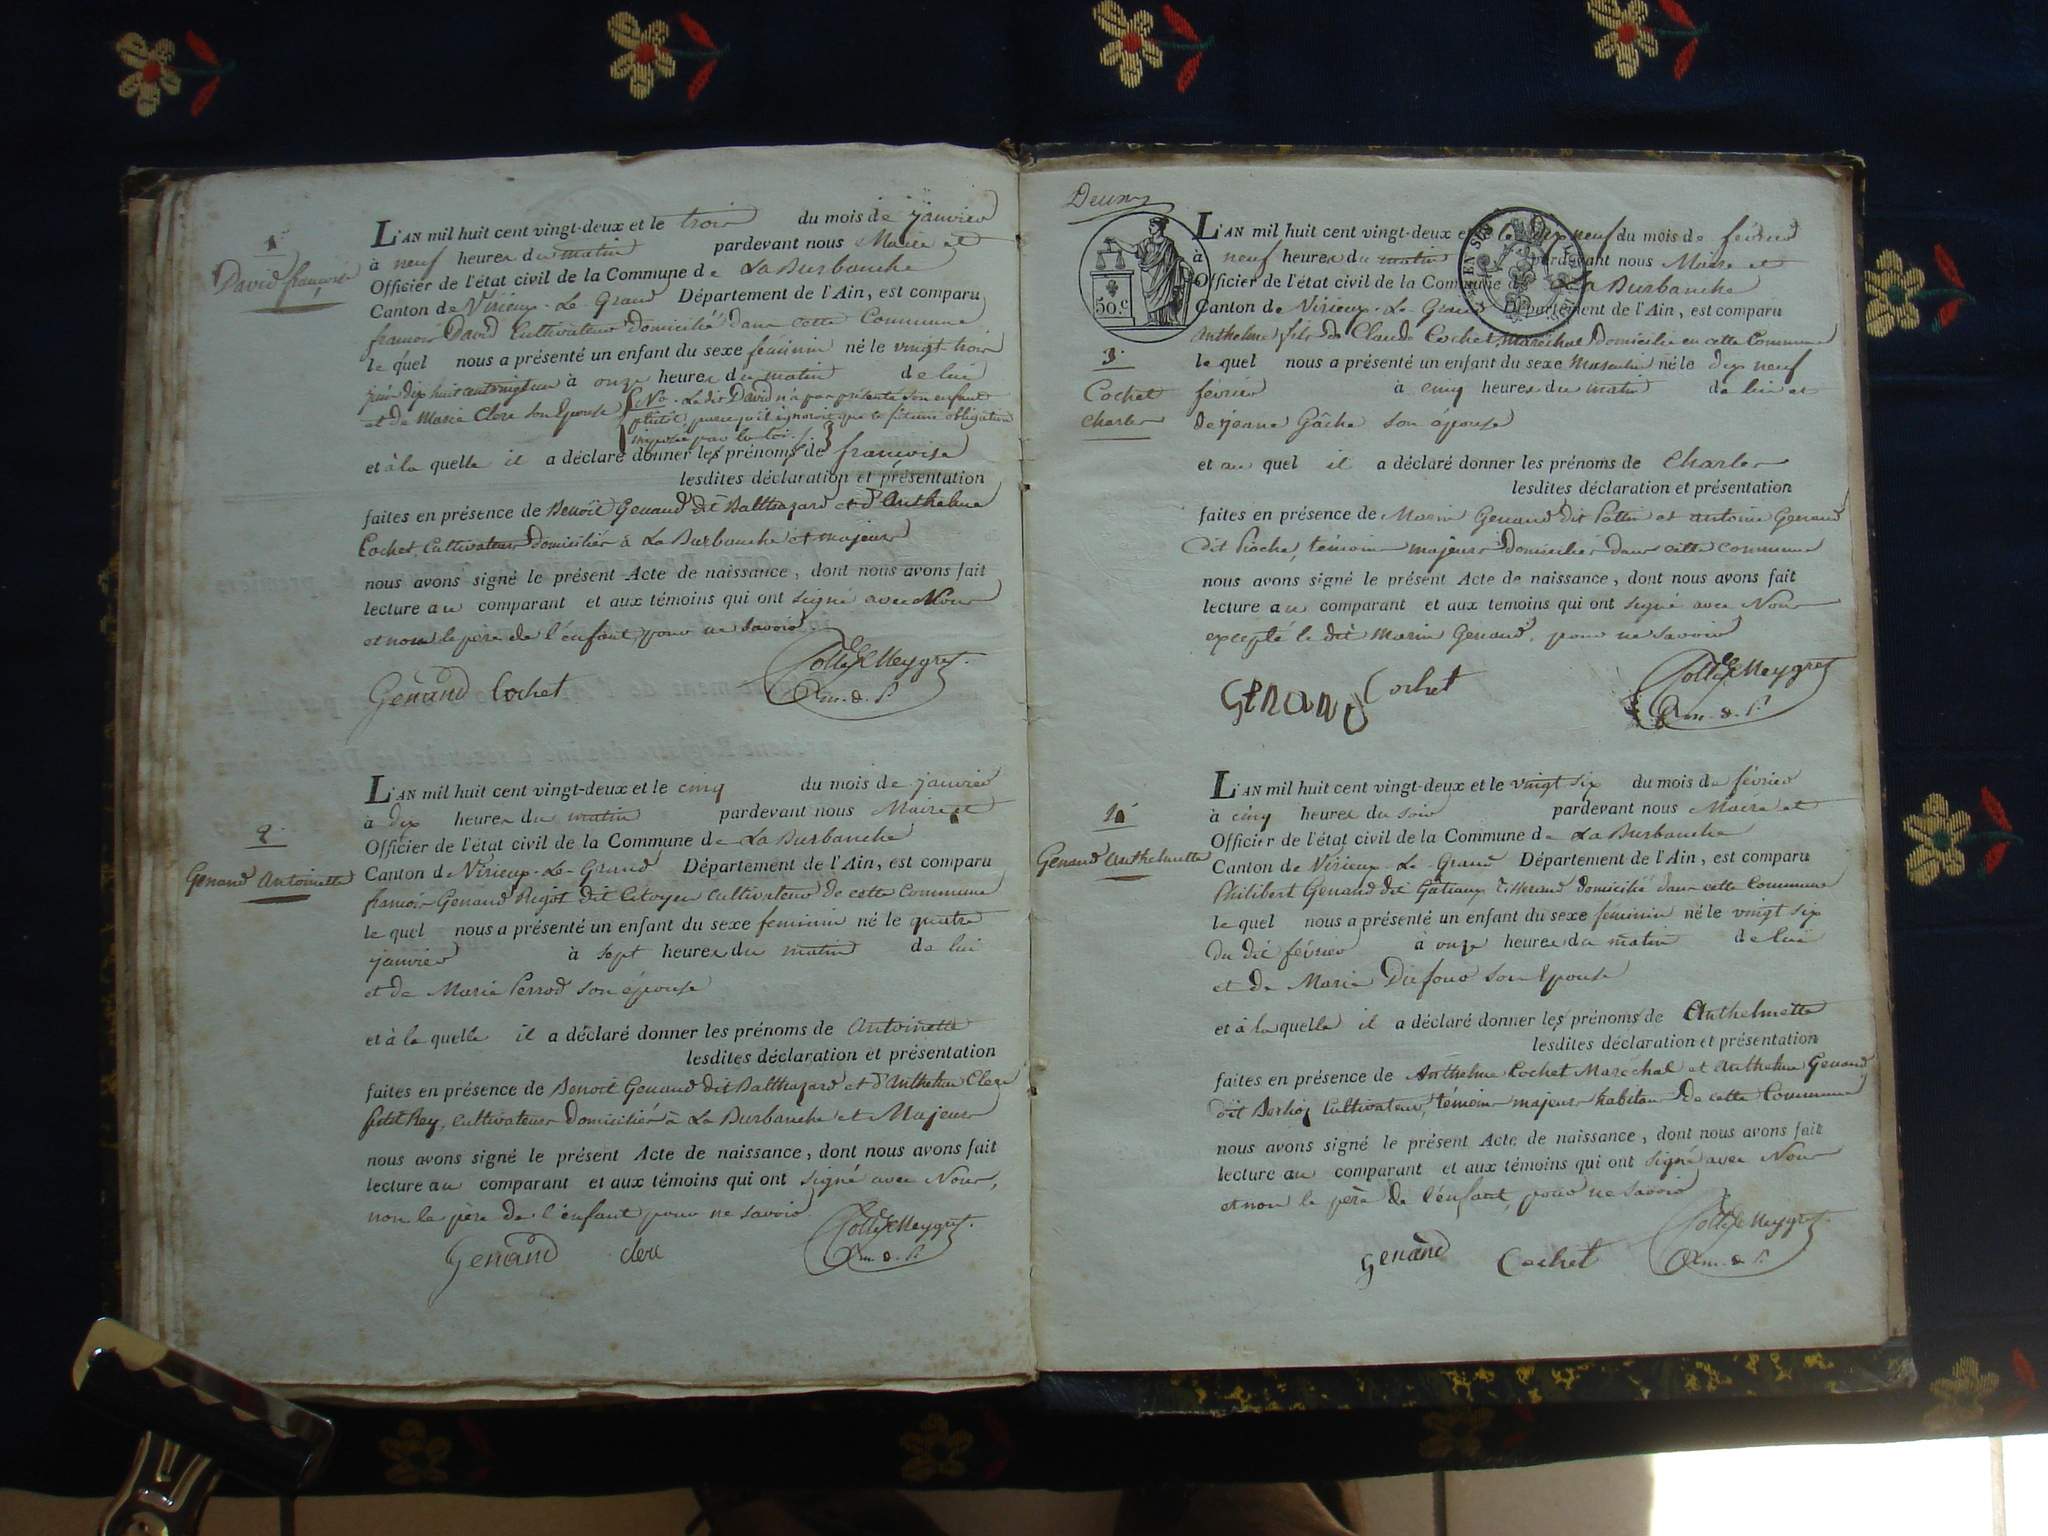 1
David françoise
L'AN mil huit cent vingt-deux et le trois du mois de janvier
à neuf heures du matin pardevant nous Maire et
Officier de l'état civil de la Commune de La Burbanche
Canton de Virieux-Le-Grand Département de l'Ain, est comparu
françois David Cultivateur domicilié dans cette Commune
le quel nous a présenté un enfant du sexe féminin né le vingt trois
juin dix huit cent vingt un à onze heures du matin de lui
et de Marie Clerc son Epouse Le dit David n'a pas présenté son enfant
plutôt, parce qu'il ignoroit que ce fut une obligation
imposée par la loi.
et à la quelle il a déclaré donner les prénoms de françoise
lesdites déclaration et présentation
faites en présence de Benoit Genand dit Balthazard et d'Anthelme
Cochet, Cultivateurs domiciliés à La Burbanche et majeurs
nous avons signé le présent Acte de naissance, dont nous avons fait
lecture au comparant et aux témoins qui ont signé avec Nous
et non le père de l'enfant, pour ne savoir
Genand Cochet
2
Genand Antoinette
L'AN mil huit cent vingt-deux et le cinq du mois de janvier
à dix heures du matin pardevant nous Maire et
Officier de l'état civil de la Commune de La Burbanche
Canton de Virieux-Le-Grand Département de l'Ain, est comparu
françois Genand Rigot dit Citoyen cultivateur de cette Commune
le quel nous a présenté un enfant du sexe feminin né le quatre
janvier à sept heures du matin de lui
et de Marie Perrod son épouse
et à la quelle il a déclaré donner les prénoms de Antoinette
lesdites déclaration et présentation
faites en présence de Benoit Genand dit Balthazard et d'Anthelme Clerc
petit Rey, cultivateurs domiciliés à La Burbanche et Majeurs
nous avons signé le présent Acte de naissance, dont nous avons fait
lecture au comparant et aux témoins qui ont signé avec Nous,
non le père de l'enfant pour ne savoir
Genand Clerc
Deux
50 c
3
Cochet
Charles
L'AN mil huit cent vingt-deux et le dix neuf du mois de février
à neuf heures du matin pardevant nous Maire et
Officier de l'état civil de la Commune de La Burbanche
Canton de Virieux-Le-Grand Département de l'Ain, est comparu
Anthelme fils de Claude Cochet, maréchal domicilié en cette Commune
le quel nous a présenté un enfant du sexe Masculin né le dix neuf
février à cinq heures du matin de lui et
de jeane Gâche son épouse
et au quel il a déclaré donner les prénoms de Charles
lesdites déclaration et présentation
faites en présence de Marin Genand dit Pottin et antoine Genand
dit Pioche, témoins majeurs domiciliés dans cette commune
nous avons signé le présent Acte de naissance, dont nous avons fait
lecture au comparant et aux temoins qui ont signé avec Nous
excepté le dit Marin Genand, pour ne savoir
Genand Cochet
4
Genand Anthelmette
L'AN mil huit cent vingt-deux et le vingt six du mois de février
à cinq heures du soir pardevant nous Maire et
Officier de l'état civil de la Commune de La Burbanche
Canton de Virieux-Le-Grand Département de l'Ain, est comparu
Philibert Genand dit Gateaux tisserand domicilié dans cette Commune
le quel nous a présenté un enfant du sexe féminin né le vingt six
du dit février à onze heures du matin de lui
et de Marie Dufour son Epouse
et à la quelle il a déclaré donner les prénoms de Anthelmette
lesdites déclaration et présentation
faites en présence de Anthelme Cochet Maréchal et Anthelme Genand
dit Berlioz Cultivateur, témoins majeurs habitans de cette Commune
nous avons signé le présent Acte de naissance, dont nous avons fait
lecture au comparant et aux témoins qui ont signé avec Nous
et non le père de l'enfant, pour ne savoir
Genand Cochet